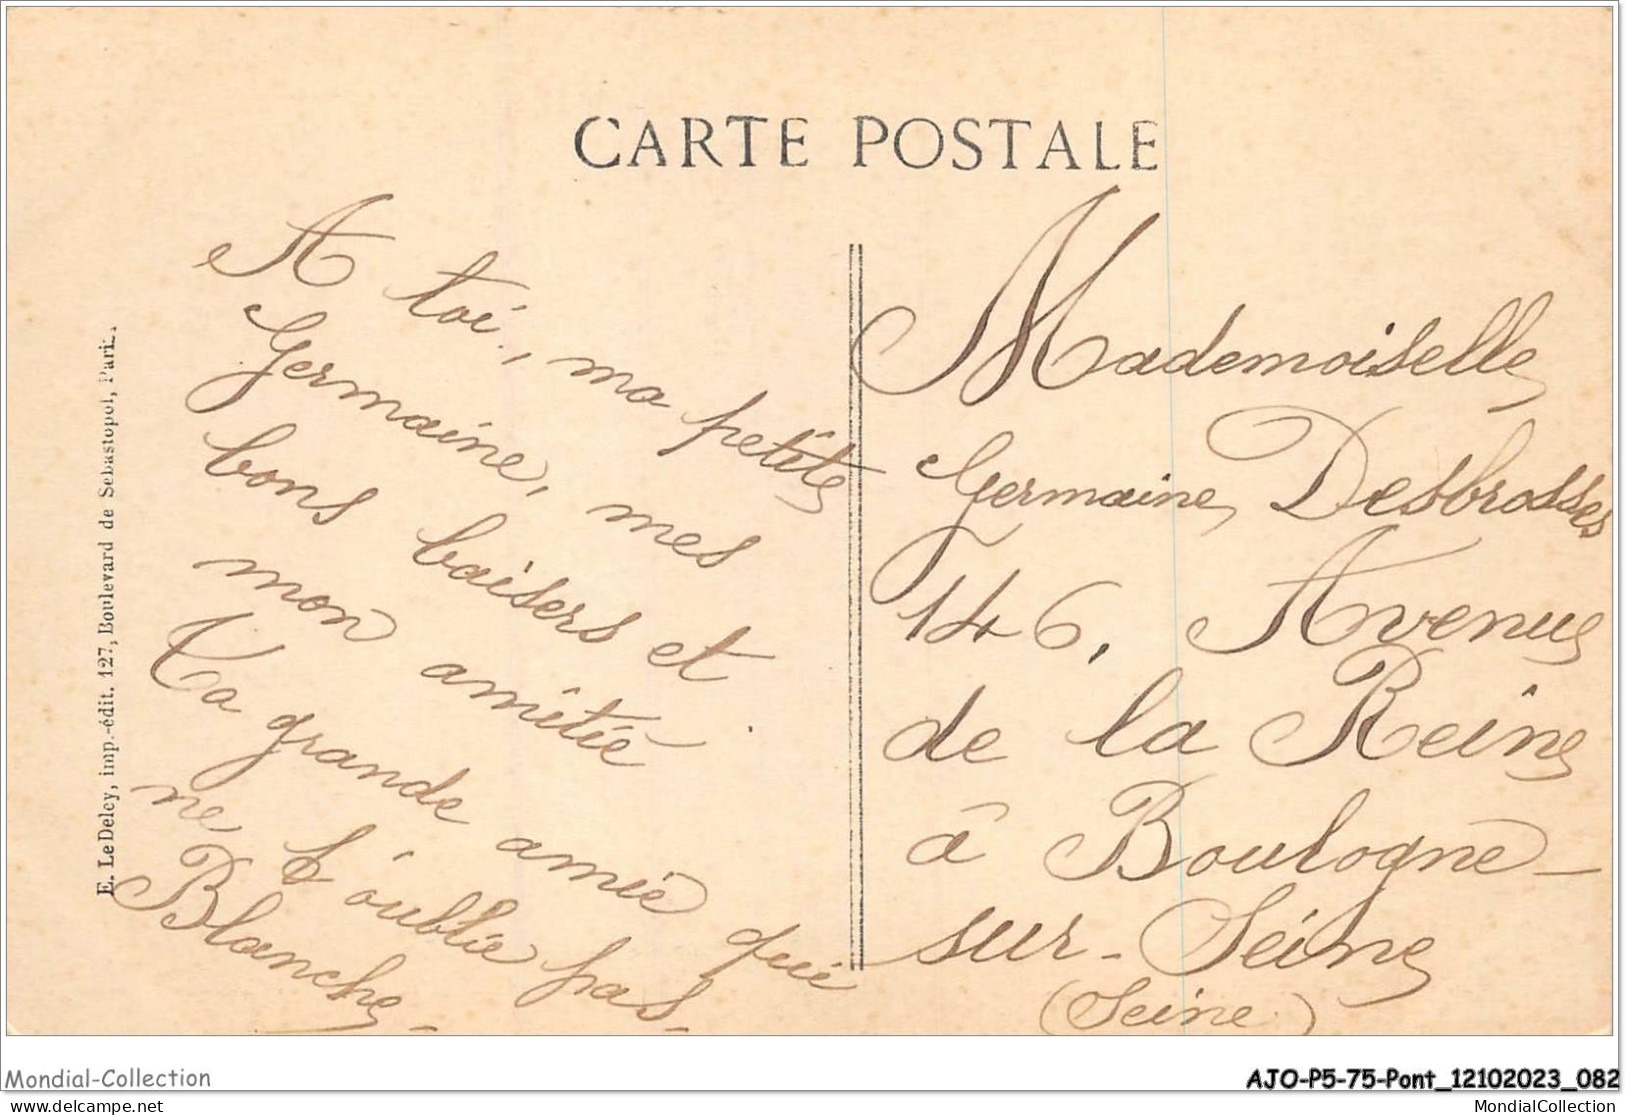 CARTE POSTALE
A toi, ma petite
Germaine, mes
bons baisers et
mon amitié
Ta grande amie qui
ne t'oublie pas -
Blanche -
Mademoiselle
Germaine Desbrosses
146, Avenue
de la Reine
à Boulogne -
sur - Seine
(Seine)
E. Le Deley, imp.-édit. 127, Boulevard de Sébastopol, Paris.
Mondial-Collection
www.delcampe.net
AJO-P5-75-Pont_12102023_082
MondialCollection